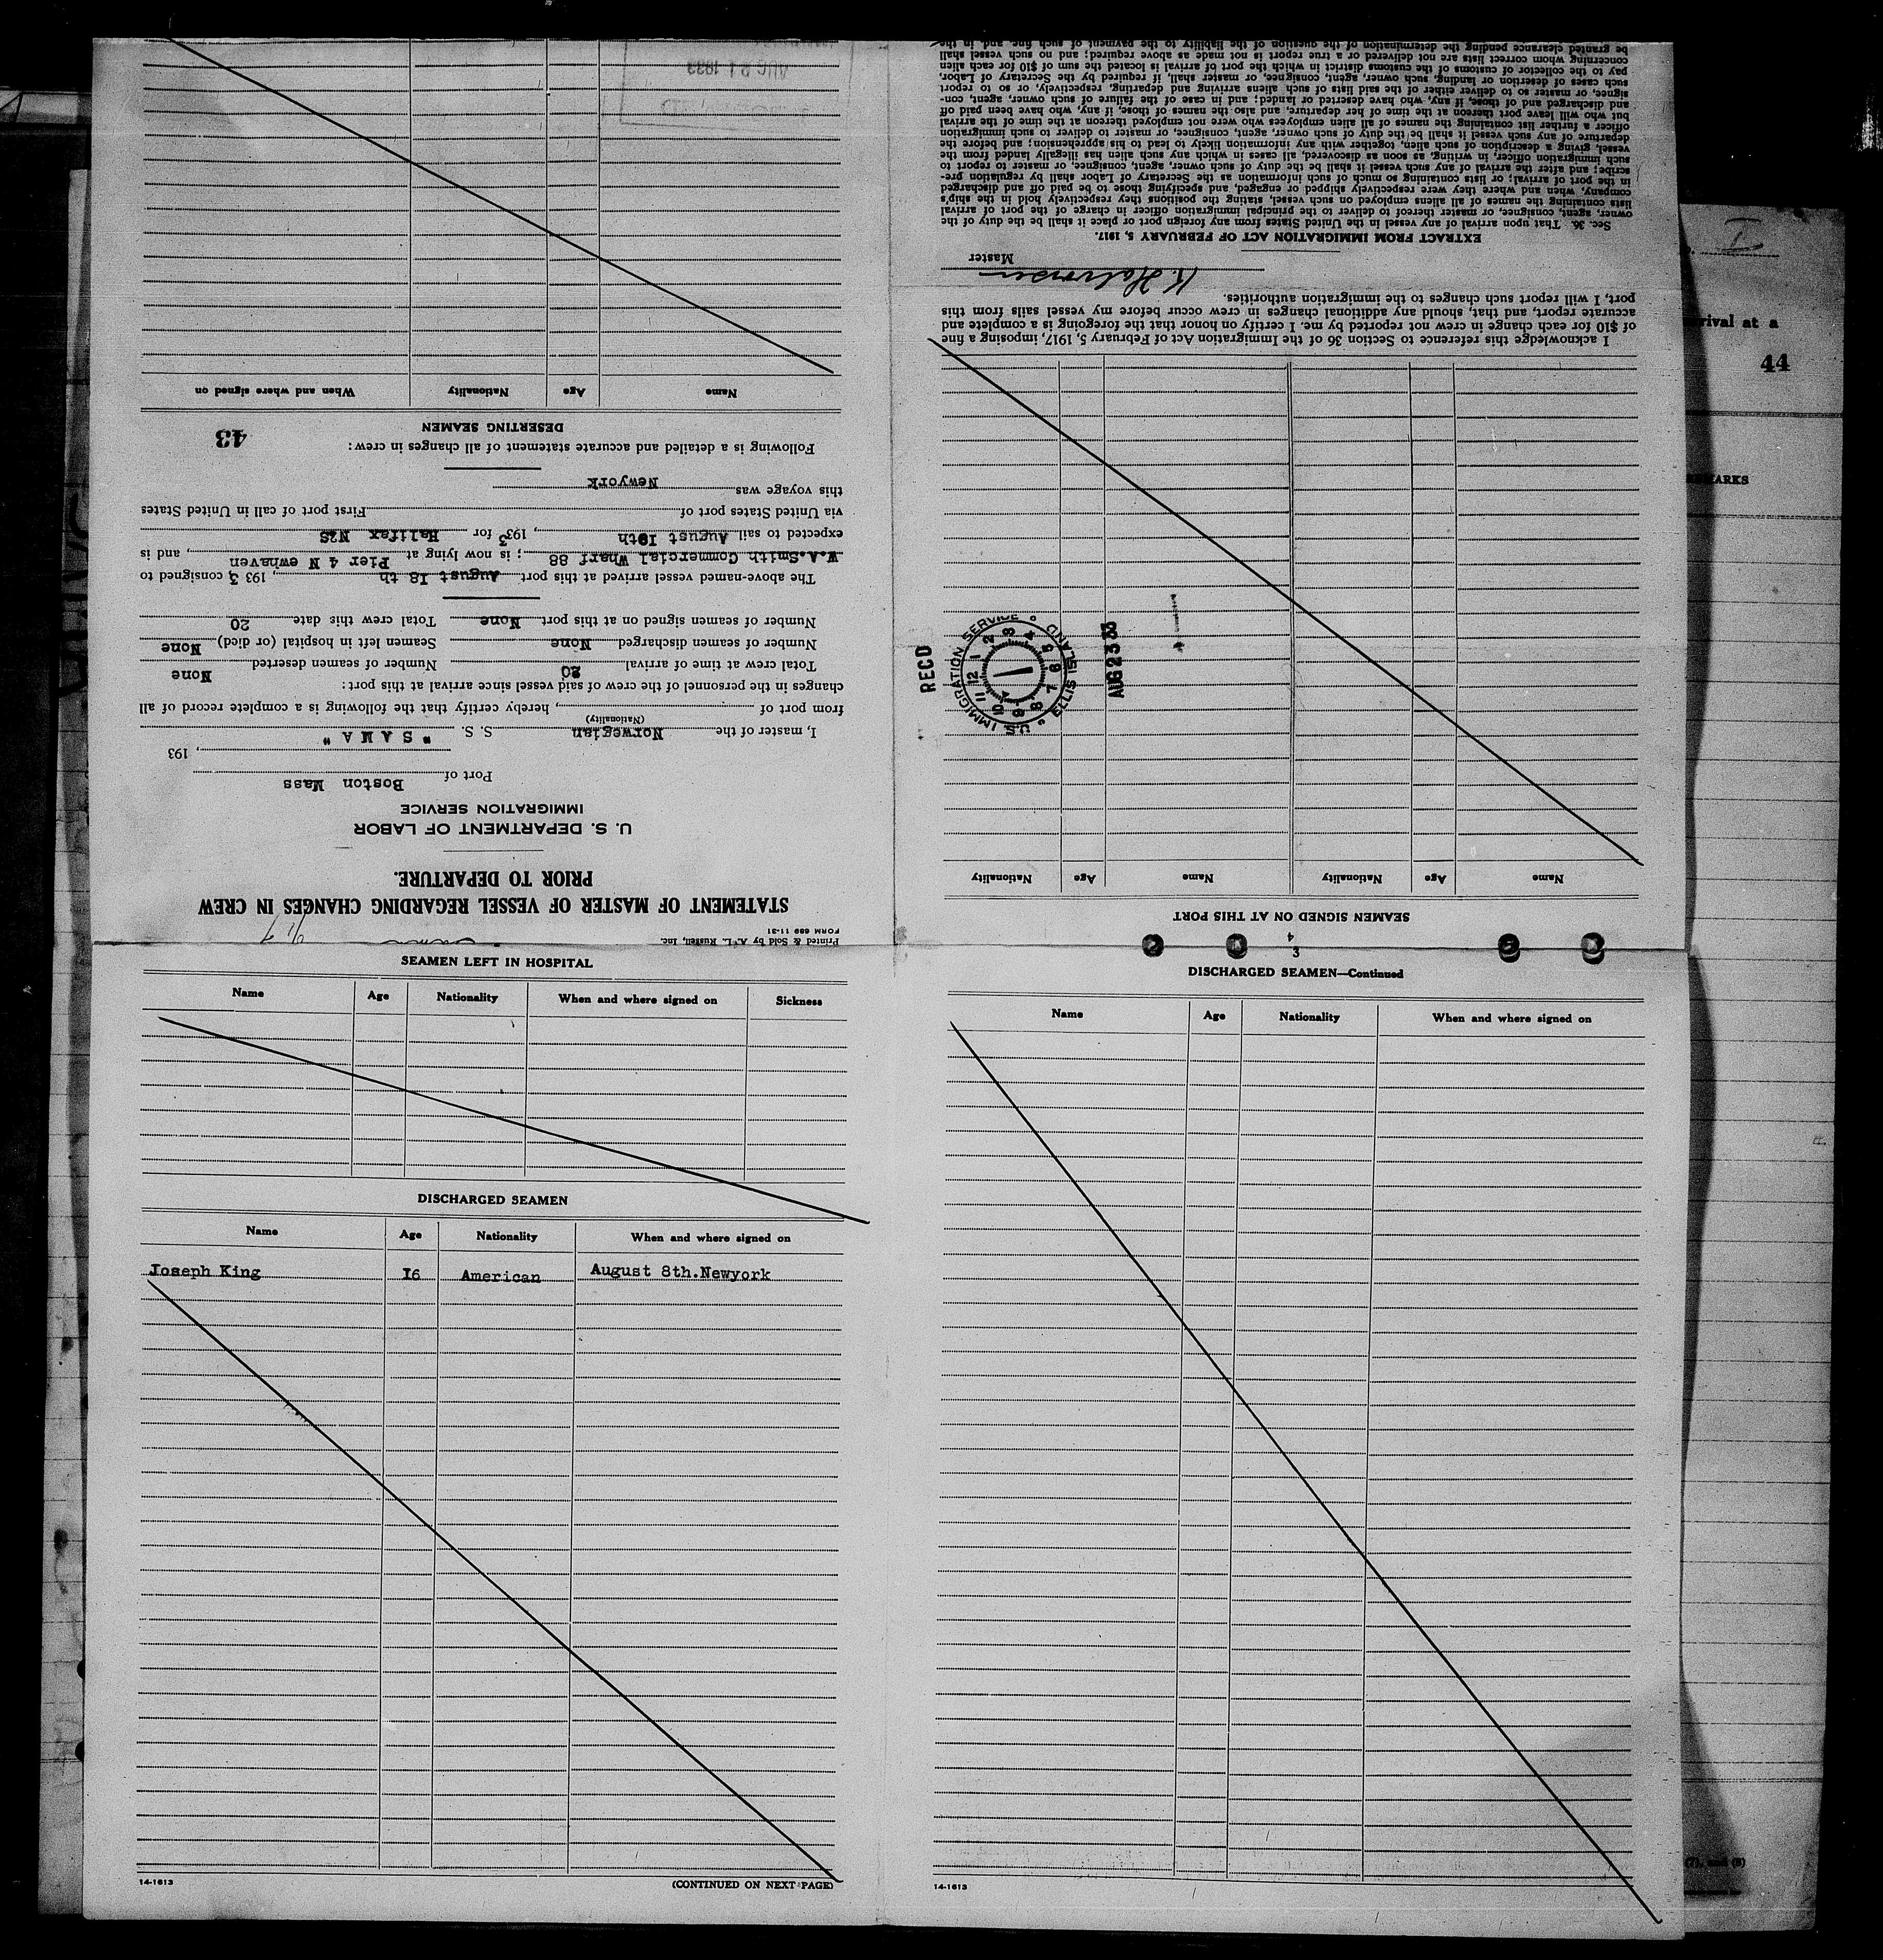 Printed & Sold by A. L. Russell, Inc.
FORM 689 11-31
STATEMENT OF MASTER OF VESSEL REGARDING CHANGES IN CREW
PRIOR TO DEPARTURE.
U. S. DEPARTMENT OF LABOR
IMMIGRATION SERVICE
Port of Boston Mass
, 193
I, master of the Norwegian S. S. " S A M A "
(Nationality)
from port of , hereby certify that the following is a complete record of all
changes in the personnel of the crew of said vessel since arrival at this port:
Total crew at time of arrival 20 Number of seamen deserted None
Number of seamen discharged None Seamen left in hospital (or died) None
Number of seamen signed on at this port None Total crew this date 20
The above-named vessel arrived at this port August I8 th , 193 3 consigned to
W.A.Smith Commercial Wharf 88 ; is now lying at Pier 4 N ewhaven , and is
expected to sail August I9th , 193 3 for Halifax N2S
via United States port of First port of call in United States
this voyage was Newyork
Following is a detailed and accurate statement of all changes in crew:
43
DESERTING SEAMEN
Name Age Nationality When and where signed on
AUG 21 1933
SEAMEN LEFT IN HOSPITAL
Name Age Nationality When and where signed on Sickness
DISCHARGED SEAMEN
Name Age Nationality When and where signed on
Joseph King I6 American August 8th.Newyork
14-1613
(CONTINUED ON NEXT PAGE)
3
4
DISCHARGED SEAMEN—Continued
Name Age Nationality When and where signed on
14-1613
SEAMEN SIGNED ON AT THIS PORT
Name Age Nationality Name Age Nationality
RECD
U.S. IMMIGRATION SERVICE
ELLIS ISLAND
1 2 3 4 5 6 7 8 9 10 11 12
AUG 23 33
I acknowledge this reference to Section 36 of the Immigration Act of February 5, 1917, imposing a fine
of $10 for each change in crew not reported by me. I certify on honor that the foregoing is a complete and
accurate report, and that, should any additional changes in crew occur before my vessel sails from this
port, I will report such changes to the immigration authorities.
K. Halvorsen
Master
EXTRACT FROM IMMIGRATION ACT OF FEBRUARY 5, 1917.
Sec. 36. That upon arrival of any vessel in the United States from any foreign port or place it shall be the duty of the
owner, agent, consignee, or master thereof to deliver to the principal immigration officer in charge of the port of arrival
lists containing the names of all aliens employed on such vessel, stating the positions they respectively hold in the ship's
company, when and where they were respectively shipped or engaged, and specifying those to be paid off and discharged
in the port of arrival; or lists containing so much of such information as the Secretary of Labor shall by regulation pre-
scribe; and after the arrival of any such vessel it shall be the duty of such owner, agent, consignee, or master to report to
such immigration officer, in writing, as soon as discovered, all cases in which any such alien has illegally landed from the
vessel, giving a description of such alien, together with any information likely to lead to his apprehension; and before the
departure of any such vessel it shall be the duty of such owner, agent, consignee, or master to deliver to such immigration
officer a further list containing the names of all alien employees who were not employed thereon at the time of the arrival
but who will leave port thereon at the time of her departure, and also the names of those, if any, who have been paid off
and discharged and of those, if any, who have deserted or landed; and in case of the failure of such owner, agent, con-
signee, or master so to deliver either of the said lists of such aliens arriving and departing, respectively, or so to report
such cases of desertion or landing, such owner, agent, consignee, or master shall, if required by the Secretary of Labor,
pay to the collector of customs of the customs district in which the port of arrival is located the sum of $10 for each alien
concerning whom correct lists are not delivered or a true report is not made as above required; and no such vessel shall
be granted clearance pending the determination of the question of the liability to the payment of such fine, and, in the
I
rival at a
44
MARKS
(7), and (8)